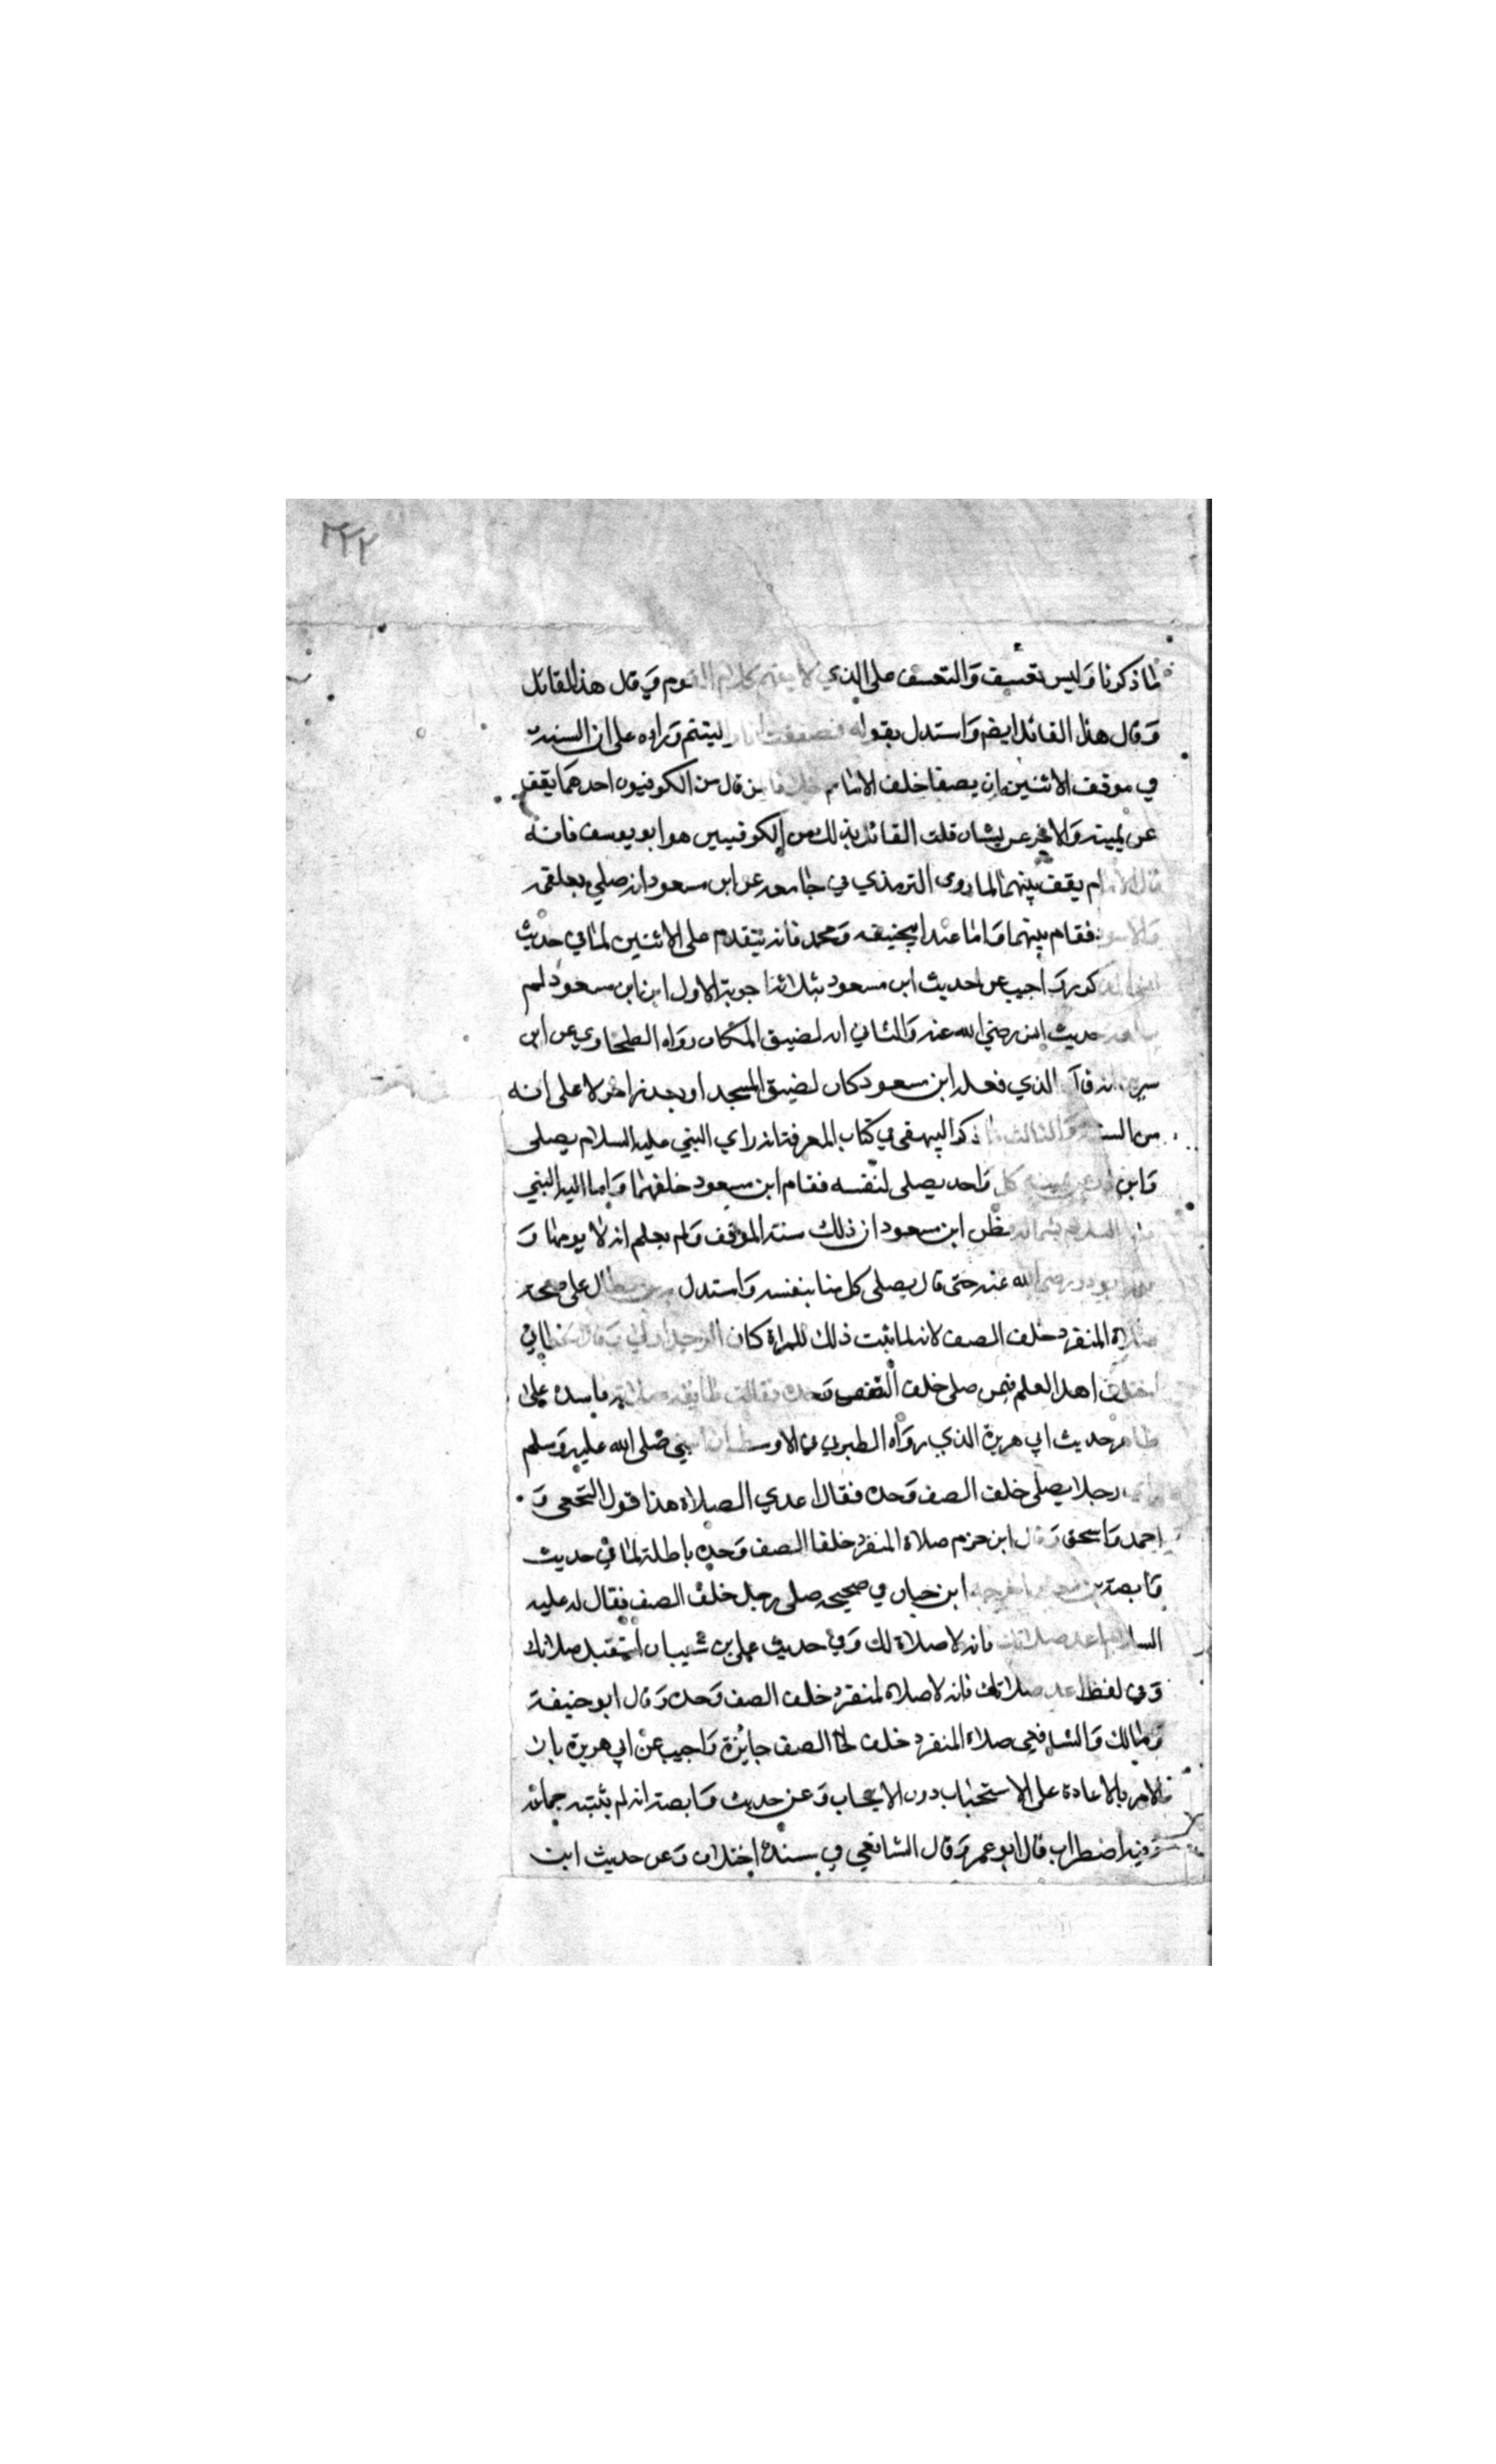 ٢٢٢
لما ذكرنا وليس تعسف والتعسف على الذي لا يفهم كلام القوم وقال هذا القائل
وقال هذا القائل ايضا واستدل بقوله فصففت انا واليتيم وراءه على ان السنة
في موقف الاثنين ان يصفا خلف الامام خلافا لمن قال من الكوفيون احدهما يقف
عن يمينه والاخر عن يساره قلت القائل بذلك من الكوفيين هو ابو يوسف فانه
قال الامام يقف بينهما لما روى الترمذي في جامعه عن ابن مسعود انه صلى بعلقمة
والاسود فقام بينهما واما عند ابي حنيفه ومحمد فانه يتقدم على الاثنين لما في حديث
كور واجيب عن حديث ابن مسعود بثلاثة اجوبة الاول ان ابن مسعود لم
حديث انس رضي الله عنه والثاني انه لضيق المكان رواه الطحاوي عن ابن
سيرين انه قال الذي فعله ابن مسعود كان لضيق المسجد او بعذر اخر لا على انه
من السنة والثالث ما ذكره البيهقي في كتاب المعرفة انه راي النبي عليه السلام يصلى
وابو ذر عن يمينه كل واحد يصلى لنفسه فقام ابن مسعود خلفهما واوما اليه النبي
عليه السلام بشماله فظن ابن مسعود ان ذلك سنة الموقف ولم يعلم انه لا يومهما و
ابو ذر رضي الله عنه حتى قال يصلى كل منا بنفسه واستدل به ابن بطال على صحة
صلاة المنفرد خلف الصف لانه لما ثبت ذلك للمراة كان الرجل اولى وقال الخطابي
اختلف اهل العلم فيمن صلى خلف الصف وحده فقالت طايفة صلاته فاسدة على
ظاهر حديث ابي هريرة الذي رواه الطبري في الاوسط ان النبي صلى الله عليه وسلم
راي رجلا يصلى خلف الصف وحده فقال اعدي الصلاة هذا قول النخعي و
احمد واسحق وقال ابن حزم صلاة المنفرد خلف الصف وحده باطلة لما في حديث
وابصة بن معبد اخرجه ابن حبان في صحيحه صلى رجل خلف الصف فقال له عليه
السلام اعد صلاتك فانه لا صلاة لك وفي حديث علي بن شيبان استقبل صلاتك
وفي لفظ اعد صلاتك فانه لا صلاة لمنفرد خلف الصف وحده وقال ابو حنيفة
ومالك والشافعي صلاة المنفرد خلف الصف جايزة واجيب عن ابي هريرة بان
الامر بالاعادة على الاستحباب دون الايجاب وعن حديث وابصة انه لم يثبته جماعة
وفيه اضطراب قال ابو عمر وقال الشافعي في سنده اختلاف وعن حديث ابن